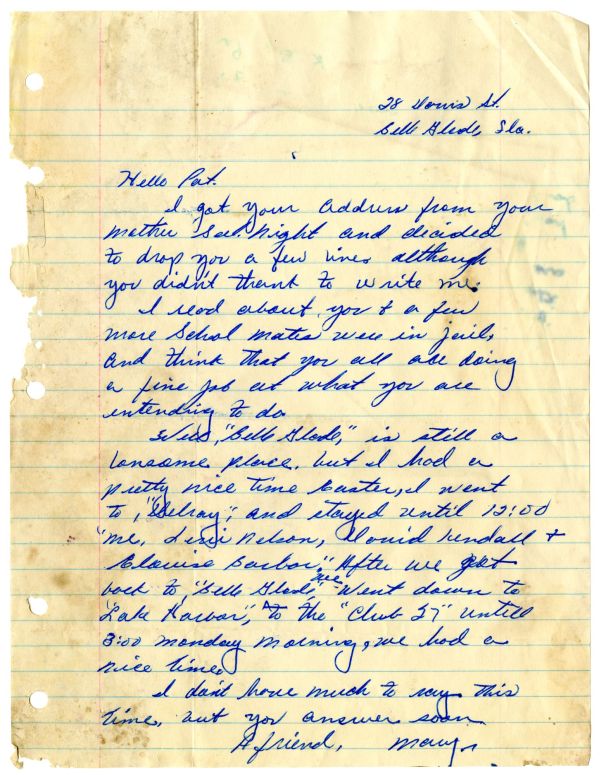 28 Davis St.
Belle Glade, Fla.
Hello Pat.
I got your address from your
mother Sat. Night and decided
to drop you a few lines although
you didn't thank to write me.
I read about you & a few
more School mates were in jail,
and think that you all are doing
a fine job at what you are
intending to do
Well, "Belle Glade," is still a
lonsome place, but I had a
pretty nice time Easter, I went
to, "Delray", and stayed until 12:00
"me, Nelson, David Kendall &
Barbor". After we got
back to, "Belle Glade," we went down to
"Lake Harbor", to the "Club 37" untill
3:00 monday morning, we had a
nice time.
I don't have much to say this
time, but you answer soon
A friend, Mary